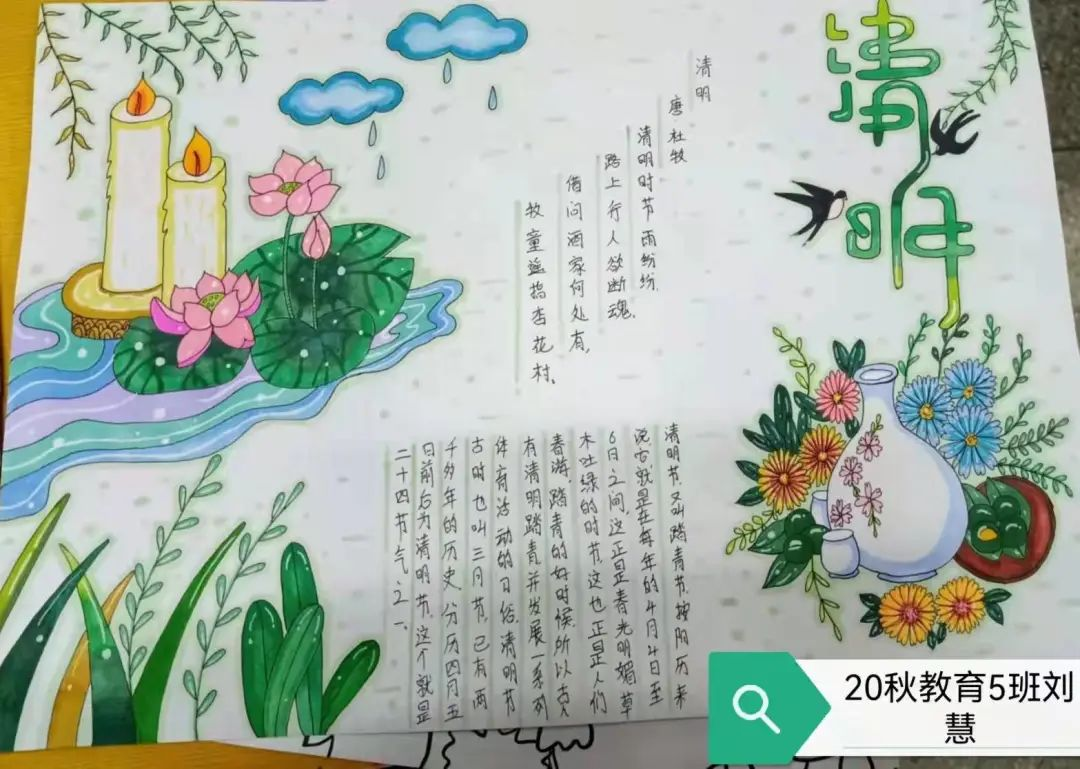 清明
清明
唐 杜牧
清明时节雨纷纷,
路上行人欲断魂,
借问酒家何处有,
牧童遥指杏花村、
清明节又叫踏青节,按阳历来
说它就是在每年的4月4日至
6日之间,这正是春光明媚草
木吐绿的时节这也正是人们
春游,踏青的好时候,所以古人
有清明踏青,并发展一系列
体育活动的习俗.清明节
古时也叫三月节,已有两
千多年的历史,公历四月五
日前后为清明节,这个就是
二十四节气之一、
20秋教育5班刘
慧